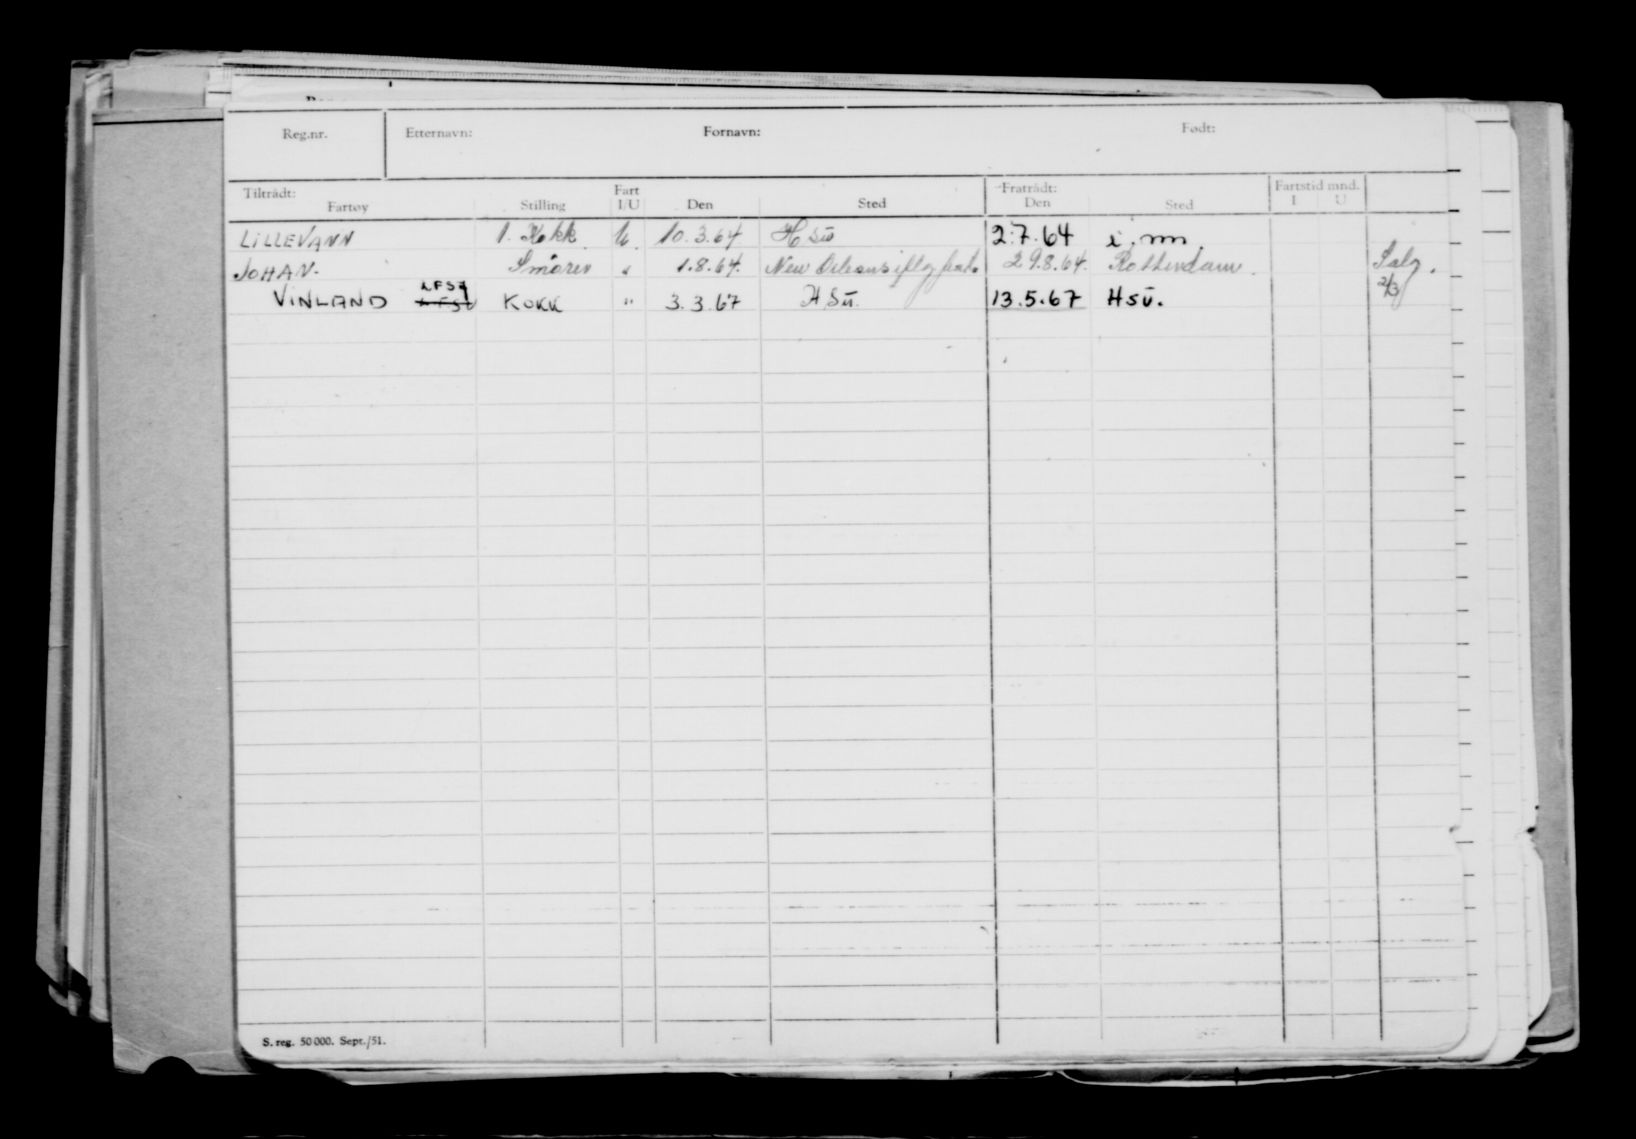 Reg.nr. Etternavn: Fornavn: Født:
Tiltrådt: Fart Fratrådt: Fartstid mnd.
Fartøy Stilling I/U Den Sted Den Sted I U
LILLEVANN 1. Kokk U. 10.3.64 Hsu 2.7.64 i.mn.
JOHAN. Smører " 1.8.64. New Orleans iflg 29.8.64. Rotterdam. Salg.
LFSY
VINLAND KOKK " 3.3.67 HSu. 13.5.67 Hsu. 2/3
S. reg. 50000. Sept./51.